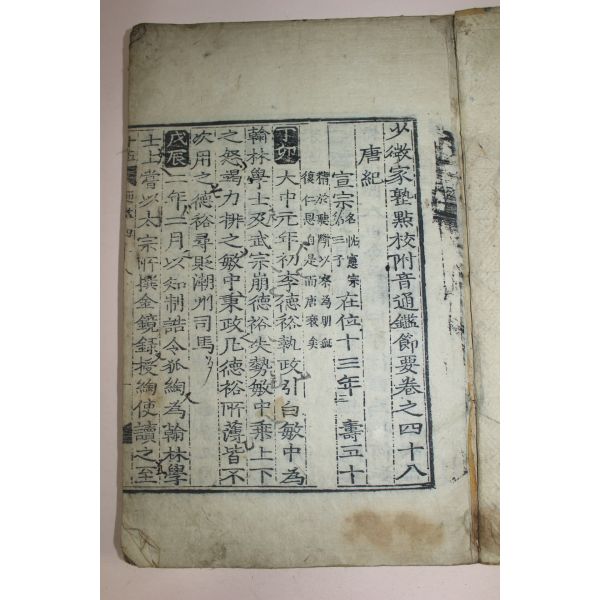 少微家塾點校附音通鑑節要卷之四十八
唐紀
宣宗 名忱憲宗第十三子 在位十三年 壽五十
精於聽斷以察為明無
復仁恩自是而唐衰矣
丁卯 大中元年初李德裕執政引白敏中為
翰林學士及武宗崩德裕失勢敏中乘上下
之怒竭力排之敏中秉政凡德裕所薄皆不
次用之德裕尋貶潮州司馬
戊辰 二年二月以知制誥令狐綯為翰林學
士上嘗以太宗所撰金鏡錄授綯使讀之至